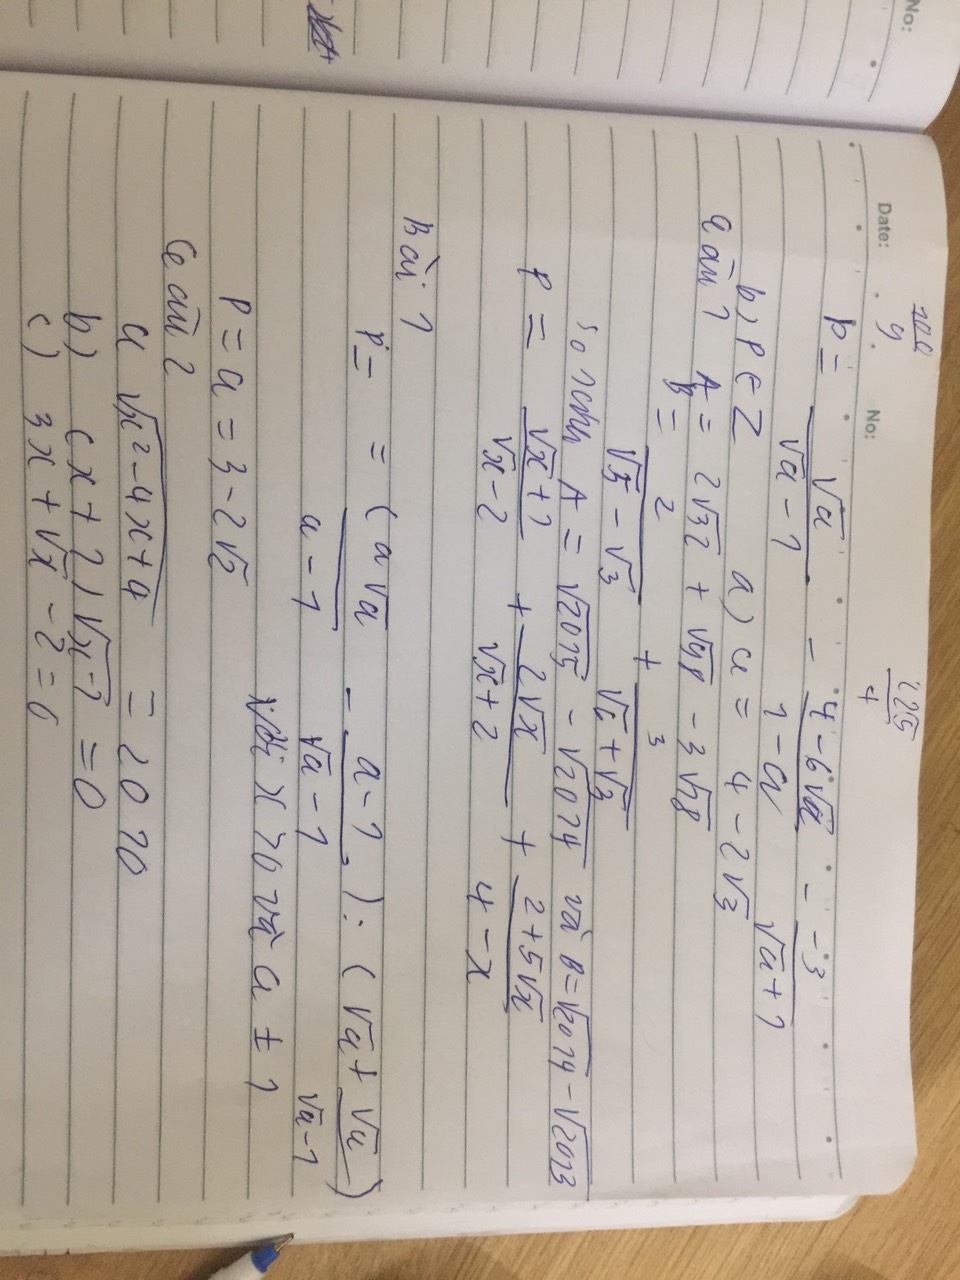 No:
Date: No:
100/9 225/4
P = √a/(√a - 1) - (4 - 6√a)/(1 - a) - -3/(√a + 1)
b) P ∈ Z a) a = 4 - 2√3
Câu 1 A = 2√32 + √98 - 3√18
B = (√5 - √3)/2 + (√5 + √3)/3
So sánh A = √2015 - √2014 và B = √2014 - √2013
P = (√x + 1)/(√x - 2) + 2√x/(√x + 2) + (2 + 5√x)/(4 - x)
Bài 1
P = = (a√a/(a - 1) - (a - 1)/(√a - 1)) : (√a + √a/(√a - 1))
Với x > 0 và a ± 1
P = a = 3 - 2√2
Câu 2
a √x² - 4x + 4 = 2010
b) (x + 2)√x - 2 = 0
c) 3x + √x - 2 = 0